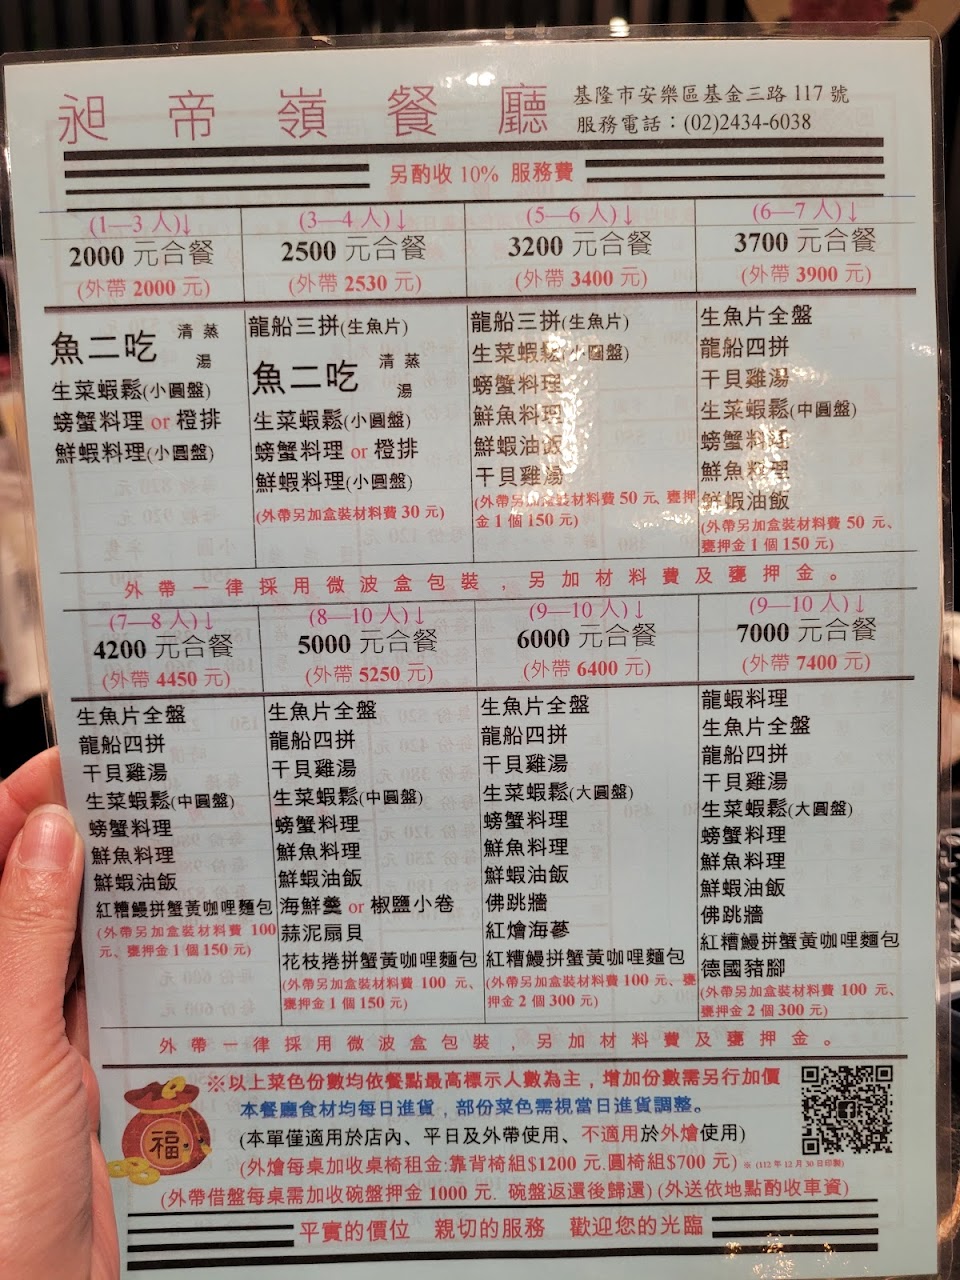 昶帝嶺餐廳
基隆市安樂區基金三路 117 號
服務電話：(02)2434-6038
另酌收 10% 服務費
(1—3 人)↓
2000 元合餐
(外帶 2000 元)
魚二吃 清蒸
湯
生菜蝦鬆(小圓盤)
螃蟹料理 or 橙排
鮮蝦料理(小圓盤)
(3—4 人)↓
2500 元合餐
(外帶 2530 元)
龍船三拼(生魚片)
魚二吃 清蒸
湯
生菜蝦鬆(小圓盤)
螃蟹料理 or 橙排
鮮蝦料理(小圓盤)
(外帶另加盒裝材料費 30 元)
(5—6 人)↓
3200 元合餐
(外帶 3400 元)
龍船三拼(生魚片)
生菜蝦鬆(小圓盤)
螃蟹料理
鮮魚料理
鮮蝦油飯
干貝雞湯
(外帶另加盒裝材料費 50 元、甕押
金 1 個 150 元)
(6—7 人)↓
3700 元合餐
(外帶 3900 元)
生魚片全盤
龍船四拼
干貝雞湯
生菜蝦鬆(中圓盤)
螃蟹料理
鮮魚料理
鮮蝦油飯
(外帶另加盒裝材料費 50 元、
甕押金 1 個 150 元)
外帶一律採用微波盒包裝，另加材料費及甕押金。
(7—8 人)↓
4200 元合餐
(外帶 4450 元)
生魚片全盤
龍船四拼
干貝雞湯
生菜蝦鬆(中圓盤)
螃蟹料理
鮮魚料理
鮮蝦油飯
紅糟鰻拼蟹黃咖哩麵包
(外帶另加盒裝材料費 100
元、甕押金 1 個 150 元)
(8—10 人)↓
5000 元合餐
(外帶 5250 元)
生魚片全盤
龍船四拼
干貝雞湯
生菜蝦鬆(中圓盤)
螃蟹料理
鮮魚料理
鮮蝦油飯
海鮮羹 or 椒鹽小卷
蒜泥扇貝
花枝捲拼蟹黃咖哩麵包
(外帶另加盒裝材料費 100 元、
甕押金 1 個 150 元)
(9—10 人)↓
6000 元合餐
(外帶 6400 元)
生魚片全盤
龍船四拼
干貝雞湯
生菜蝦鬆(大圓盤)
螃蟹料理
鮮魚料理
鮮蝦油飯
佛跳牆
紅燴海蔘
紅糟鰻拼蟹黃咖哩麵包
(外帶另加盒裝材料費 100 元、甕
押金 2 個 300 元)
(9—10 人)↓
7000 元合餐
(外帶 7400 元)
龍蝦料理
生魚片全盤
龍船四拼
干貝雞湯
生菜蝦鬆(大圓盤)
螃蟹料理
鮮魚料理
鮮蝦油飯
佛跳牆
紅糟鰻拼蟹黃咖哩麵包
德國豬腳
(外帶另加盒裝材料費 100 元、
甕押金 2 個 300 元)
外帶一律採用微波盒包裝，另加材料費及甕押金。
福
※以上菜色份數均依餐點最高標示人數為主，增加份數需另行加價
本餐廳食材均每日進貨，部份菜色需視當日進貨調整。
(本單僅適用於店內、平日及外帶使用、不適用於外燴使用)
(外燴每桌加收桌椅租金:靠背椅組$1200 元.圓椅組$700 元) ※ (112 年 12 月 30 日印製)
(外帶借盤每桌需加收碗盤押金 1000 元. 碗盤返還後歸還) (外送依地點酌收車資)
平實的價位 親切的服務 歡迎您的光臨